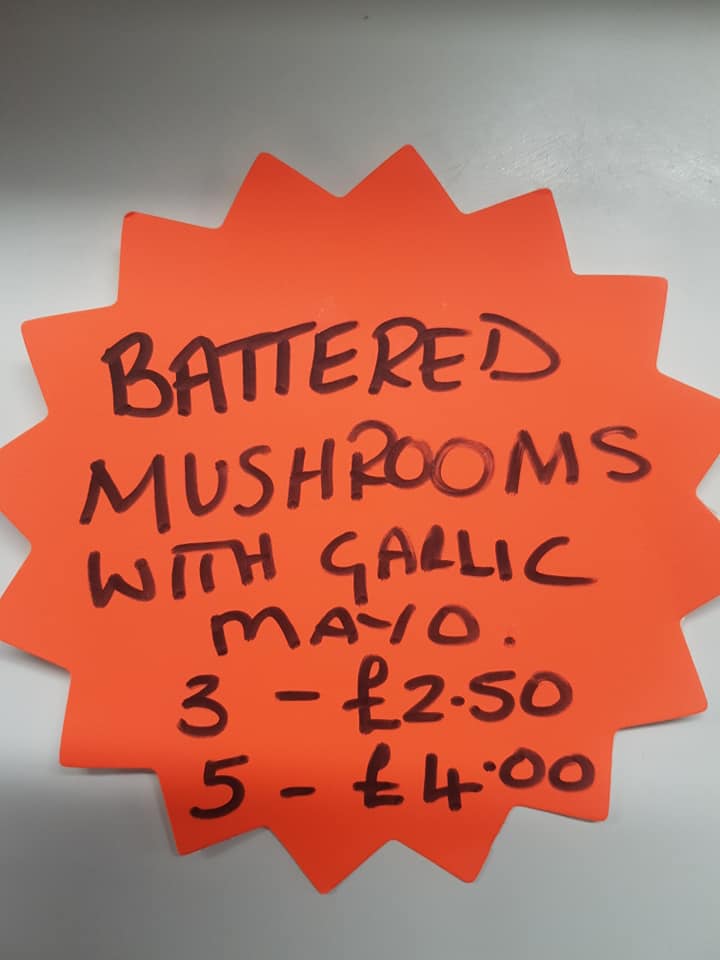 BATTERED
MUSHROOMS
WITH GARLIC
MAYO.
3 - £2.50
5 - £4.00